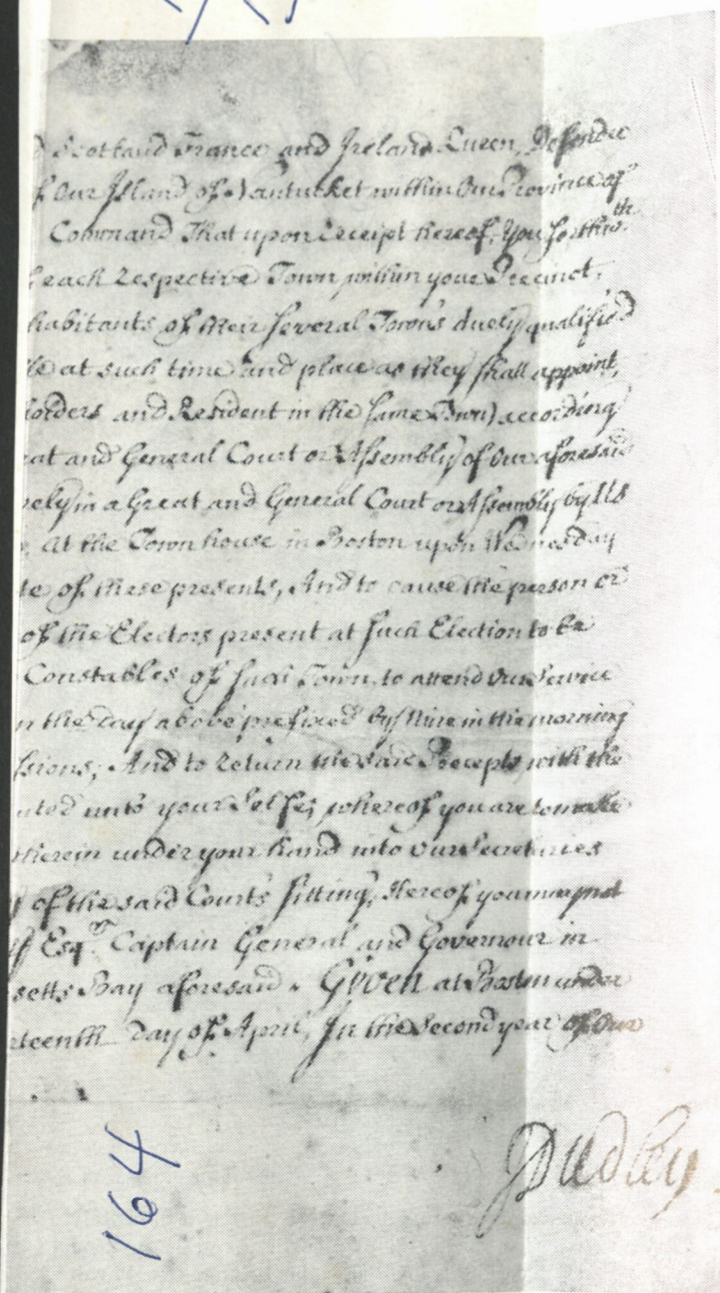 d Scotland France and Ireland Queen, Defender
f Our Island of Nantucket within Our Province of
Command That upon Receipt hereof, You forthwth
f each Respective Town within your Precinct,
habitants of their Several Towns duely qualified
le at such time and place as they shall appoint,
holders and Resident in the same Town) according
eat and General Court or Assembly of Our aforesaid
vely in a Great and General Court or Assembly by Us
At the Town house in Boston upon Wednesday
te of these presents, And to cause the person or
of the Electors present at such Election to be
Constables of such Town, to attend Our Service
n the day above prefixed by Nine in the morning
ssions; And to Return the said Precepts with the
uted unto your Selfe; whereof you are to make
therein under your hand into Our Secretaries
of the said Courts sitting, Hereof you may not
Esqr Captain General and Governour in
setts Bay aforesaid. Given at Boston under
rteenth day of April, In the Second year of Our
J Dudley
164